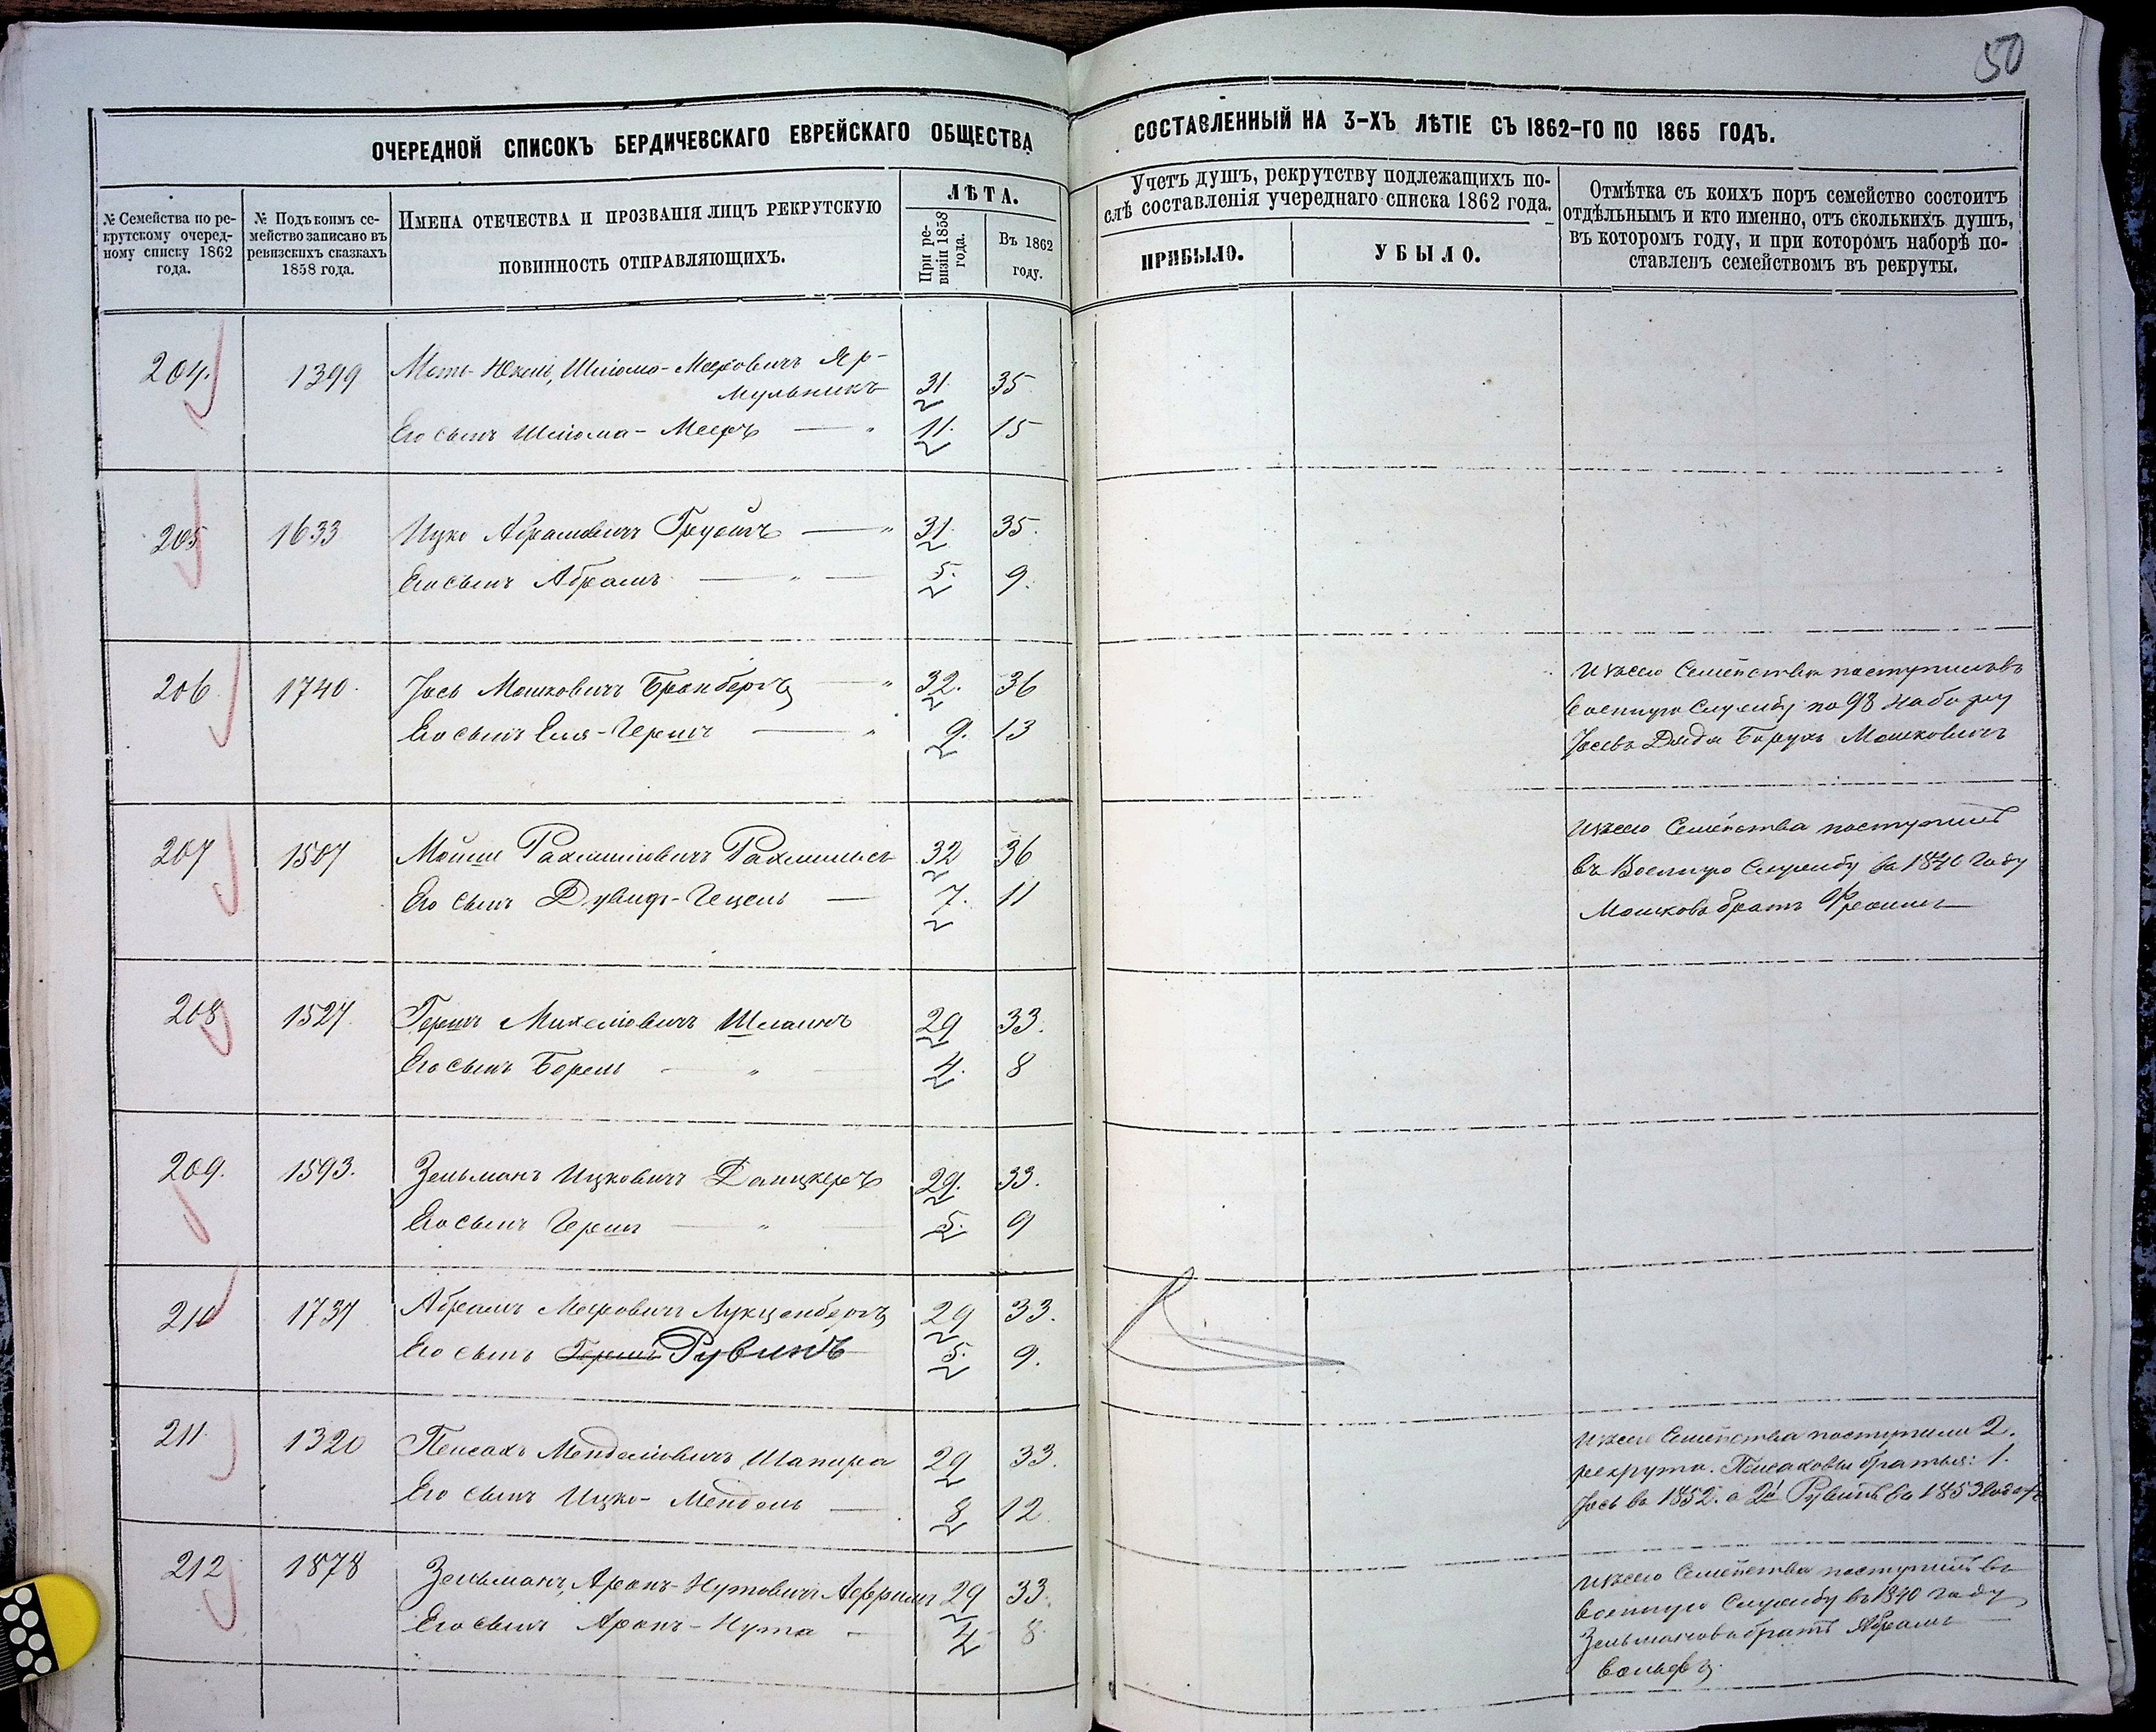 50
ОЧЕРЕДНОЙ СПИСОКЪ БЕРДИЧЕВСКАГО ЕВРЕЙСКАГО ОБЩЕСТВА
СОСТАВЛЕННЫЙ НА 3-ХЪ ЛѢТІЕ СЪ 1862-ГО ПО 1865 ГОДЪ.
№ Семейства по ре-
крутскому очеред-
ному списку 1862
года.
№ Подъ коимъ се-
мейство записано въ
ревизскихъ сказкахъ
1858 года.
ИМЕНА ОТЕЧЕСТВА И ПРОЗВАНІЯ ЛИЦЪ РЕКРУТСКУЮ
ПОВИННОСТЬ ОТПРАВЛЯЮЩИХЪ.
ЛѢТА.
При ре-
визіи 1858
года.
Въ 1862
году.
Учетъ душъ, рекрутству подлежащихъ по-
слѣ составленія учереднаго списка 1862 года.
ПРИБЫЛО.
УБЫЛО.
Отмѣтка съ коихъ поръ семейство состоитъ
отдѣльнымъ и кто именно, отъ сколькихъ душъ,
въ которомъ году, и при которомъ наборѣ по-
ставленъ семействомъ въ рекруты.
204. 1399 Шліома-Мееровичъ Яр-
мульникъ 31 35
Его сынъ Шліома-Мееръ 11. 15
205 1633 Ицко Абрамовичъ 31. 35.
Его сынъ Абрамъ 5. 9.
206 1740. Іось Мошковичъ Бронбергъ 32. 36
Его сынъ Еля-Гершъ 9. 13
Изъ сего Семейства поступилъ въ
военную службу по 98 набору
Іосевъ Дядя Борухъ Мошковичъ
207 1507 Мойше Рахмиловичъ 32 36
Его сынъ Дувидъ-Гецель 7. 11
Изъ сего Семейства поступилъ
въ Военную Службу въ 1840 Году
Мошковъ братъ Фроимъ
208 1527 Гершъ Михелiовичъ 29 33.
Его сынъ Берель 4. 8
209. 1593. Зельманъ Ицковичъ Данцкеръ 29. 33.
Его сынъ Гершъ 5. 9
210 1737 Абрамъ Мееровичъ Лукценбергъ 29 33.
Его сынъ Гершъ Рувинъ 5. 9.
211. 1320 Пейсахъ Менделіовичъ Шапира 29 33.
Его сынъ Ицко-Мендель 8 12
Изъ сего Семейства поступили 2.
рекрута. Пейсаховы братья: 1.
Іось въ 1852. а 2й Рувинъ въ 1853 году
212 1878 Зельманъ, Аронъ-Нутовичъ 29 33.
Его сынъ Аронъ-Нута 4 8.
Изъ сего Семейства поступилъ въ
военную Службу въ 1840 году
Зельмановъ братъ Абрамъ
Вольфъ.